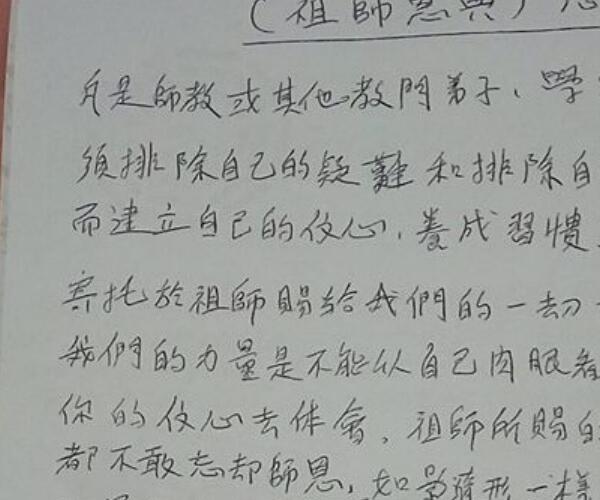 (祖師恩典)
凡是師教或其他教門弟子、學
須排除自己的疑難和排除自
而建立自己的信心,養成習慣
寄托於祖師賜給我們的一切
我們的力量是不能从自己肉眼看
你的信心去体會,祖師所賜的
都不敢忘却師恩,如影隨形一樣